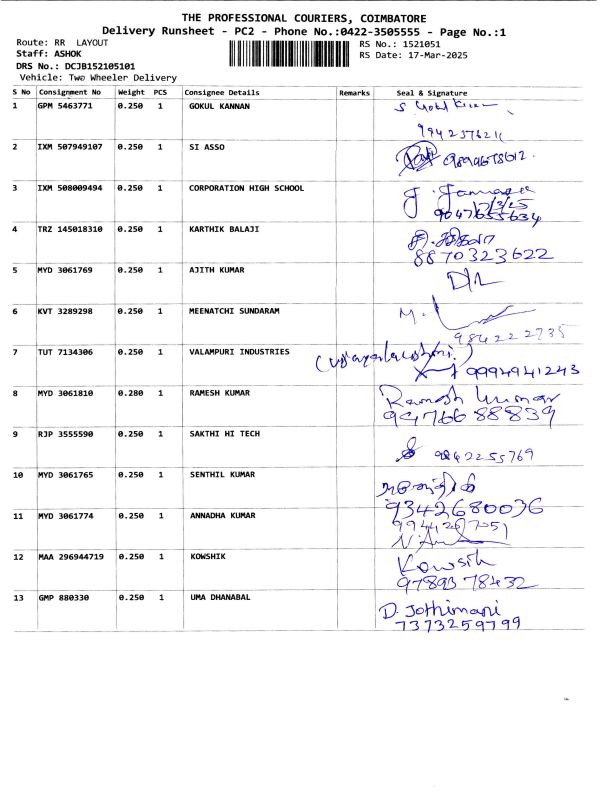 THE PROFESSIONAL COURIERS, COIMBATORE
Delivery Runsheet - PC2 - Phone No.:0422-3505555 - Page No.:1
Route: RR LAYOUT
RS No.: 1521051
Staff: ASHOK
RS Date: 17-Mar-2025
DRS No.: DCJB152105101
Vehicle: Two Wheeler Delivery
S No Consignment No Weight PCS Consignee Details Remarks Seal & Signature
1 GPM 5463771 0.250 1 GOKUL KANNAN
2 IXM 507949107 0.250 1 SI ASSO
3 IXM 508009494 0.250 1 CORPORATION HIGH SCHOOL
17/3/25
9047655634
4 TRZ 145018310 0.250 1 KARTHIK BALAJI
8870323622
5 MYD 3061769 0.250 1 AJITH KUMAR
6 KVT 3289298 0.250 1 MEENATCHI SUNDARAM
9842222735
7 TUT 7134306 0.250 1 VALAMPURI INDUSTRIES
9994941243
8 MYD 3061810 0.280 1 RAMESH KUMAR
Ramesh Kumar
9 RJP 3555590 0.250 1 SAKTHI HI TECH
9842255769
10 MYD 3061765 0.250 1 SENTHIL KUMAR
9342680036
11 MYD 3061774 0.250 1 ANNADHA KUMAR
12 MAA 296944719 0.250 1 KOWSHIK
Kowsik
13 GMP 880330 0.250 1 UMA DHANABAL
D. Jothimani
7373259799